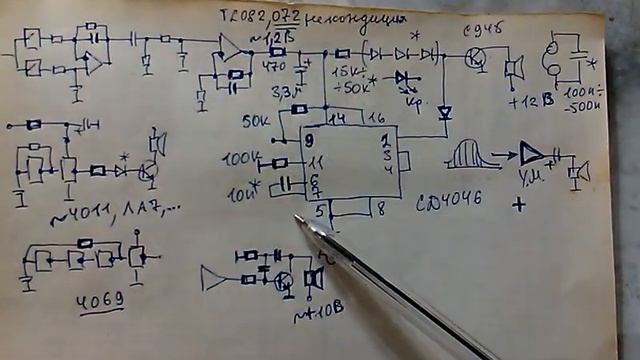 TL082, 072 некондиция
~1,2В
C945
470
3,3м
15К÷
÷50К*
*
кр.
+12 В
*
100н÷
-500н
50К
14
16
9
1
3
4
100К
11
10н*
6
7
5
8
CD4046
У.М.
+
*
~4011, ЛА7,...
4069
~+10В